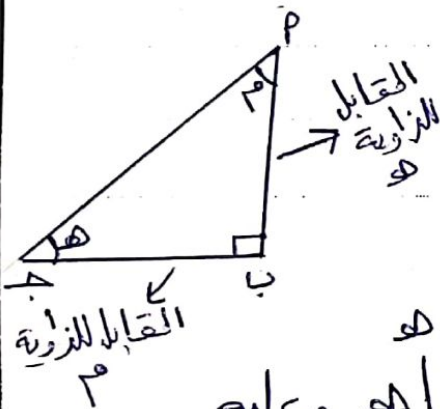 م
م
المقابل
للزاوية
ه
ه
ج
ب
المقابل للزاوية
م
ه